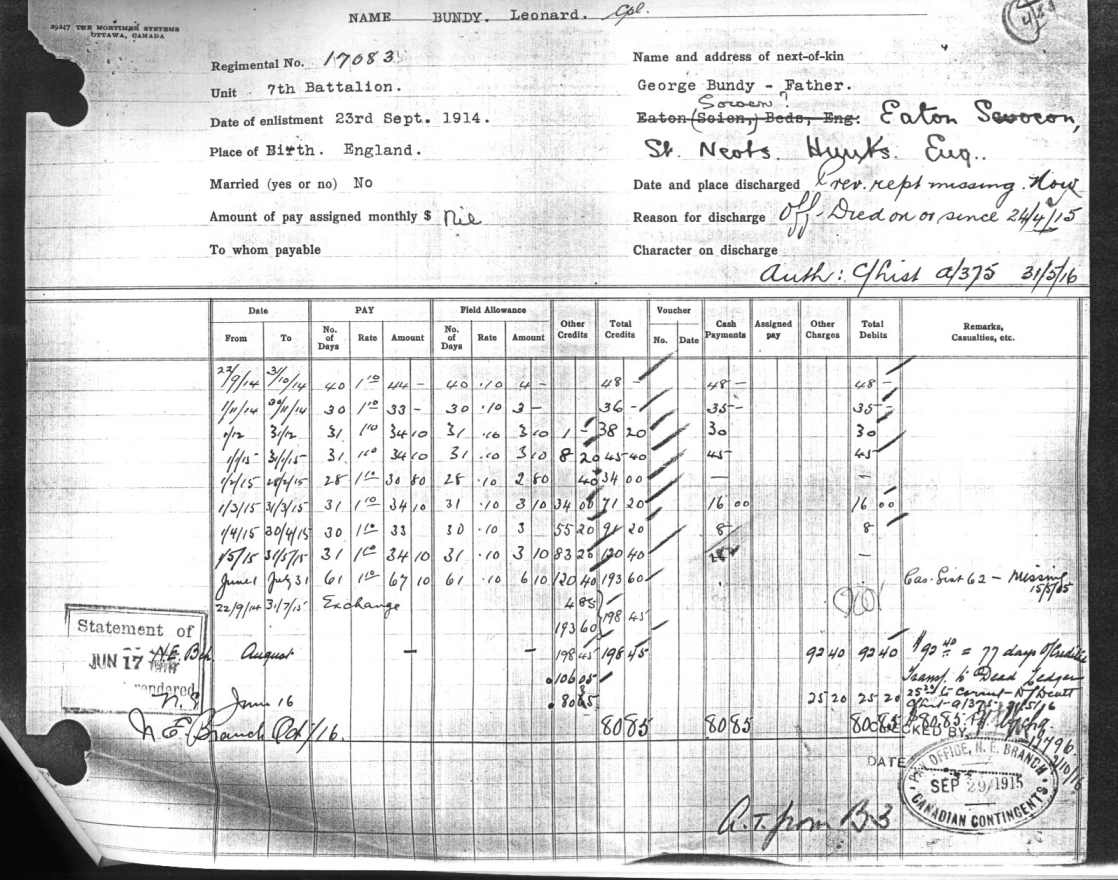 29247 THE MORTIMER SYSTEMS
OTTAWA, CANADA
NAME BUNDY. Leonard. Cpl.
Regimental No. 17083
Unit 7th Battalion.
Date of enlistment 23rd Sept. 1914.
Place of Birth. England.
Married (yes or no) No
Amount of pay assigned monthly $ Nil
To whom payable
Name and address of next-of-kin
George Bundy - Father.
Socoen?
Eaton (Soien,) Beds, Eng: Eaton Socon,
St. Neots. Hunts. Eng..
Date and place discharged Prev. rept missing. Now
Reason for discharge Off. Died on or since 24/4/15
Character on discharge
Auth: C/List a/375 31/5/16
Date PAY Field Allowance Other Credits Total Credits Voucher Cash Payments Assigned pay Other Charges Total Debits Remarks, Casualties, etc.
From To No. of Days Rate Amount No. of Days Rate Amount No. Date
22/9/14 31/10/14 40 1 10 44 - 40 .10 4 - 48 - 48 - 48 -
1/11/14 30/11/14 30 1 10 33 - 30 .10 3 - 36 - 35 - 35 -
1/12 31/12 31 1 10 34 10 31 .10 3 10 1 - 38 20 30 30
1/1/15 31/1/15 31 1 10 34 10 31 .10 3 10 8 20 45 40 45 45
1/2/15 28/2/15 28 1 10 30 80 28 .10 2 80 40 34 00 — —
1/3/15 31/3/15 31 1 10 34 10 31 .10 3 10 34 00 71 20 16 00 16 00
1/4/15 30/4/15 30 1 10 33 30 .10 3 55 20 91 20 8 8
1/5/15 31/5/15 31 1 10 34 10 31 .10 3 10 83 20 120 40 —
June 1 July 31 61 1 10 67 10 61 .10 6 10 120 40 193 60 Cas. List 62 - Missing
15/5/15
22/9/14 31/7/15 Exchange 4 85
193 60 198 45
August — — 198 45 198 45 92 40 92 40 $92 40 = 77 days O/Credits
106 05 Transf. to Dead Ledger
June 16 80 85 25 20 25 20
C/List a/375 31/5/16
N. E. Branch Oct/16. 80 85 80 85 80 85
Statement of
JUN 17
rendered
N.E. Bch
CHECKED BY
DATE
PAY OFFICE, N. E. BRANCH
SEP 29 1915
CANADIAN CONTINGENTS
A.T. from B-3